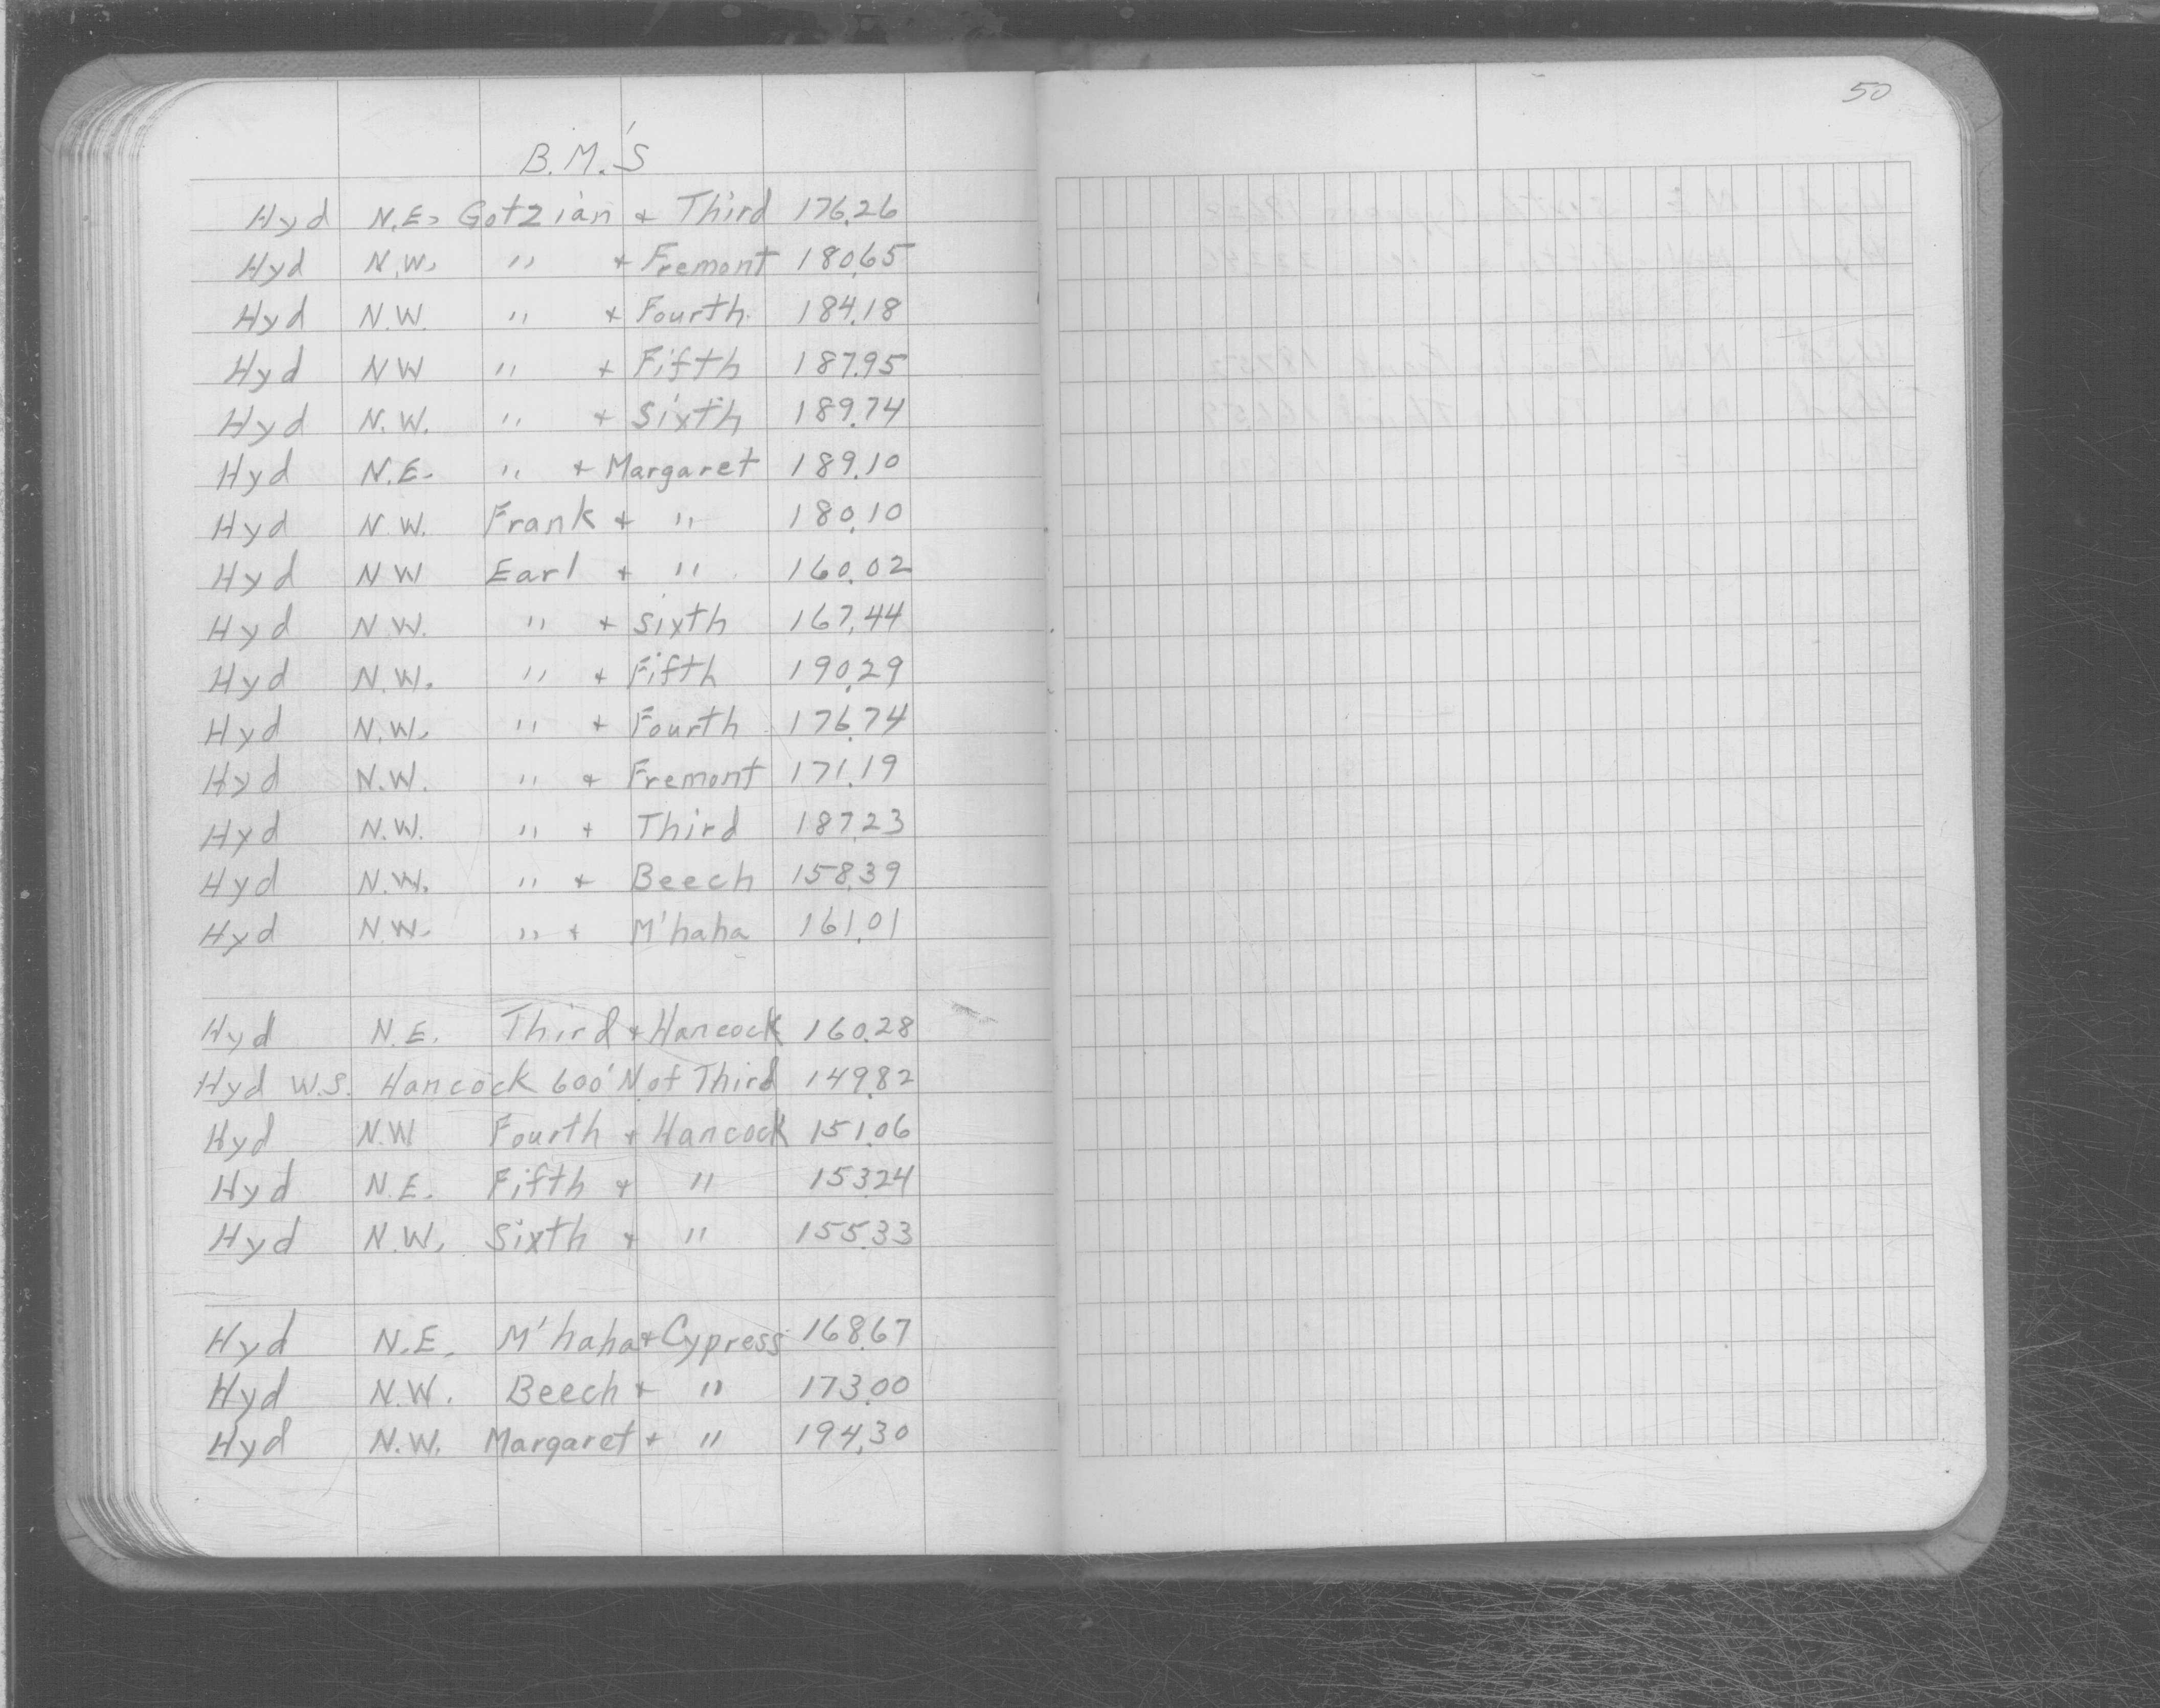 B.M.'s
Hyd N.E. Gotzian + Third 176.26
Hyd N.W. " + Fremont 180.65
Hyd N.W. " + Fourth 184.18
Hyd NW " + Fifth 187.95
Hyd N.W. " + Sixth 189.74
Hyd N.E. " + Margaret 189.10
Hyd N.W. Frank + " 180.10
Hyd NW Earl + " 160.02
Hyd N.W. " + Sixth 167.44
Hyd N.W. " + Fifth 190.29
Hyd N.W. " + Fourth 176.74
Hyd N.W. " + Fremont 171.19
Hyd N.W. " + Third 187.23
Hyd N.W. " + Beech 158.39
Hyd N.W. " + M'haha 161.01
Hyd N.E. Third + Hancock 160.28
Hyd W.S. Hancock 600' N of Third 149.82
Hyd N.W Fourth + Hancock 151.06
Hyd N.E. Fifth + " 153.24
Hyd N.W. Sixth + " 155.33
Hyd N.E. M'haha + Cypress 168.67
Hyd N.W. Beech + " 173.00
Hyd N.W. Margaret + " 194.30
50